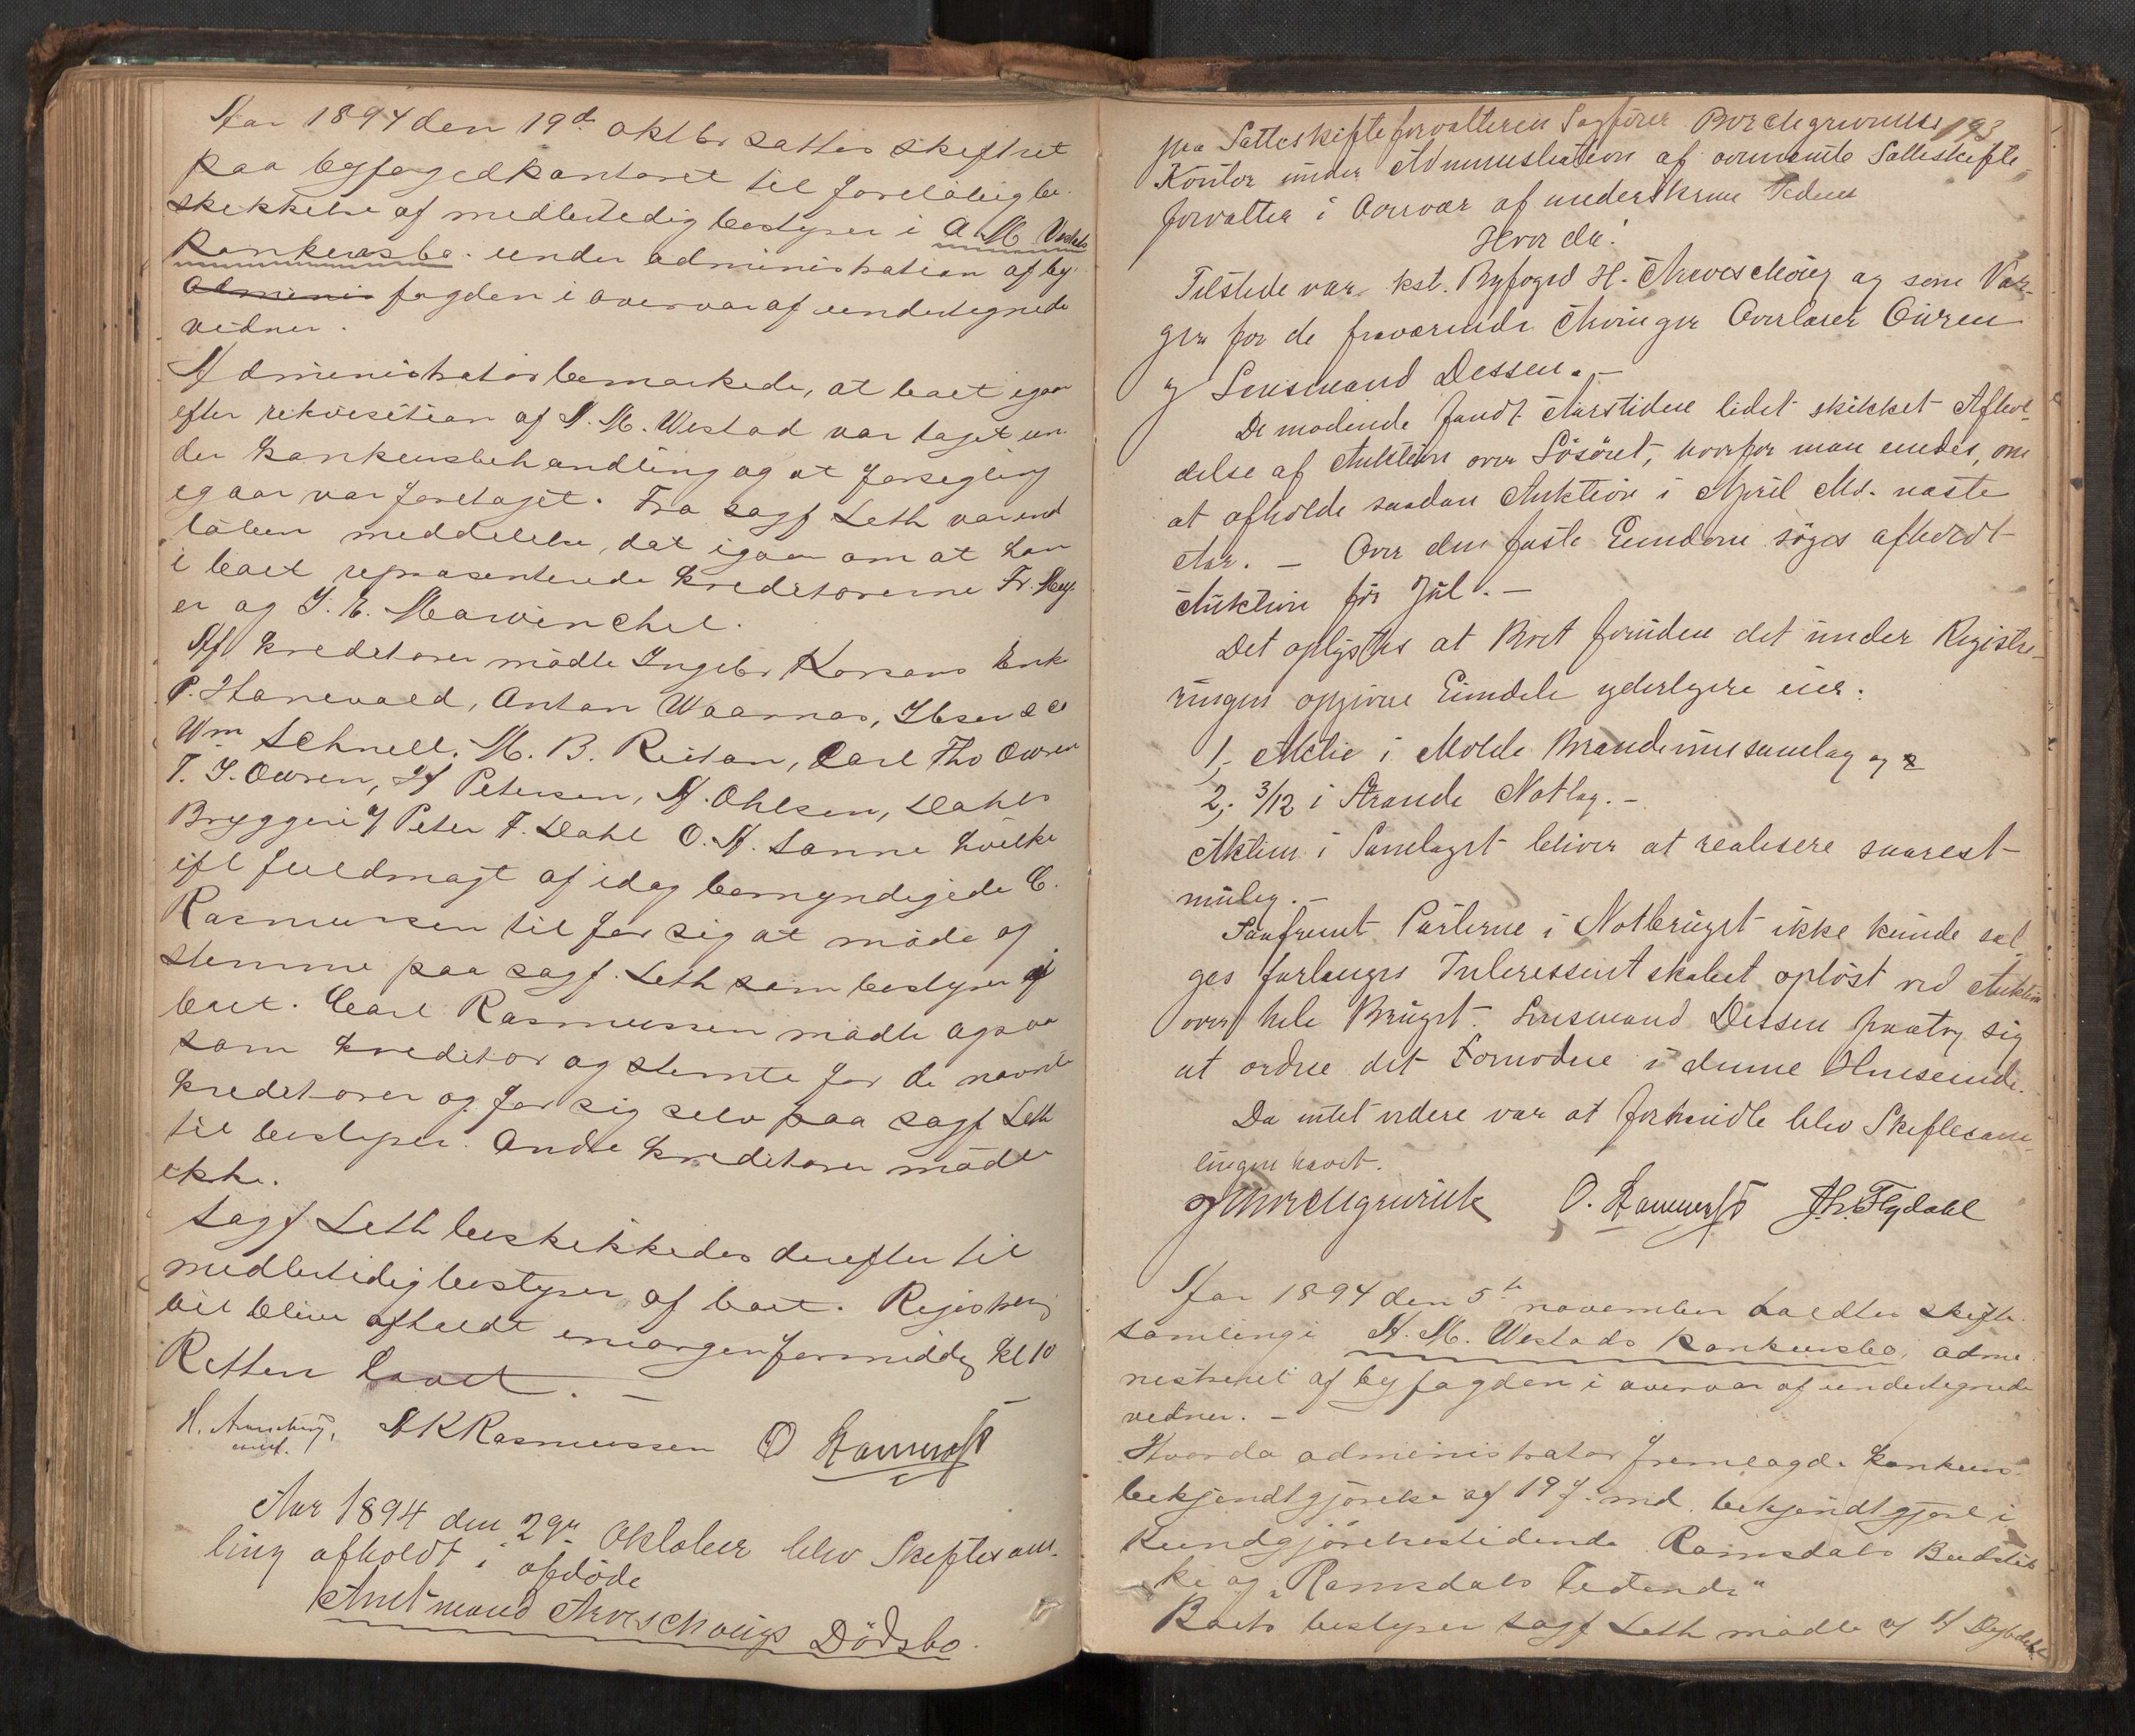 Aar 1894 den 19de oktbr sattes skifteret
paa byfogedkontoret til foreløbig be-
skikkelse af midlertidig bestyrer i A. M. Vestads
Konkursbo. under administration af by-
Adminis fogden i overvær af undertegnede
vidner.
Administrator bemærkede, at boet igaar
efter rekvisition af A. M. Westad var taget un-
der konkursbehandling og at forsegling
igaar var foretaget. Fra sagf Leth var ind
løben meddelelse, dat igaar om at han
i boet repræsenterede kreditorerne Fr. Mey-
er og J. E. Marwinchel.
Af kreditorer mødte Ingebr Korsans Enke
P. Hanevold, Anton Waarnas, Ibsen & Co
Wm Schnell, M. B. Reitan, Carl Tho Owren
T. J. Owren, Petersen, A. Ohlsen, Dahls
Bryggeri v/ Peter F. Dahl O. A. Sanne hvilke
ifl fuldmagt af idag bemyndigede C.
Rasmussen til for sig at møde og
stemme paa sagf. Leth som bestyrer af
boet. Carl Rasmussen mødte ogsaa
som kreditor og stemte for de nævnte
kreditorer og for sig selv paa sagf Leth
til bestyrer. Andre kreditorer mødte
ikke.
Sagf Leth beskikkedes derefter til
midlertidig bestyrer af boet. Registrering
vil blive afholdt imorgen formiddag kl 10
Retten hævet. —
H. Aroschoug, K Rasmussen O Hammerst
const.
Aar 1894 den 29de Oktober blev Skiftesam-
ling afholdt i afdøde
Amtmand Aroeschougs Dödsbo.
193
paa Sætteskifteforvalteren Sagförer Borchgrevinks
Kontor under Administration af ovennævnte Sætteskifte-
forvalter i Overvær af underskrevne Vidner
Hvor da!
Tilstede var kst. Byfoged H. Aroeschoug og som Vær-
ger for de fraværende Arvinger Overlærer Owren
og Lensmand Dessen. —
De mødende fandt Aarstiden lidet skikket Afhol-
delse af Auktion over Lösöret, hvorfor man enedes om
at afholde saadan Auktion i April Md. næste
Aar. — Over den faste Eiendom söges afholdt
Auktion før Jul. —
Det oplystes at Boet foruden det under Registre-
ringen opgivne Eiendele yderligere eier:
1, Aktie i Molde Brændevinssamlag og
2, 3/12 i Strande Notlag. —
Aktien i Samlaget bliver at realisere snarest
mulig. —
Saafremt Parterne i Notbruget ikke kunde sæl-
ges forlanges Interessentskabet oplöst ved Auktion
over hele Bruget. Lensmand Dessen paatog sig
at ordne det Fornødne i denne Henseende.
Da intet videre var at forhandle blev Skiftesam-
lingen hævet.
Borchgrevink O. Hammerst Flydahl
Aar 1894 den 5te november holdtes skifte-
samling i A. M. Westads Konkursbo, admi-
nistreret af byfogden i overvær af undertegnede
vidner. —
Hvorda administrator fremlagde konkurs-
bekjendtgjørelse af 19 f. md. bekjendtgjort i
Kundgjørelsestidende Romsdals Budstik-
ke og "Romsdals Tidende"
Boets bestyrer sagf Leth mødte